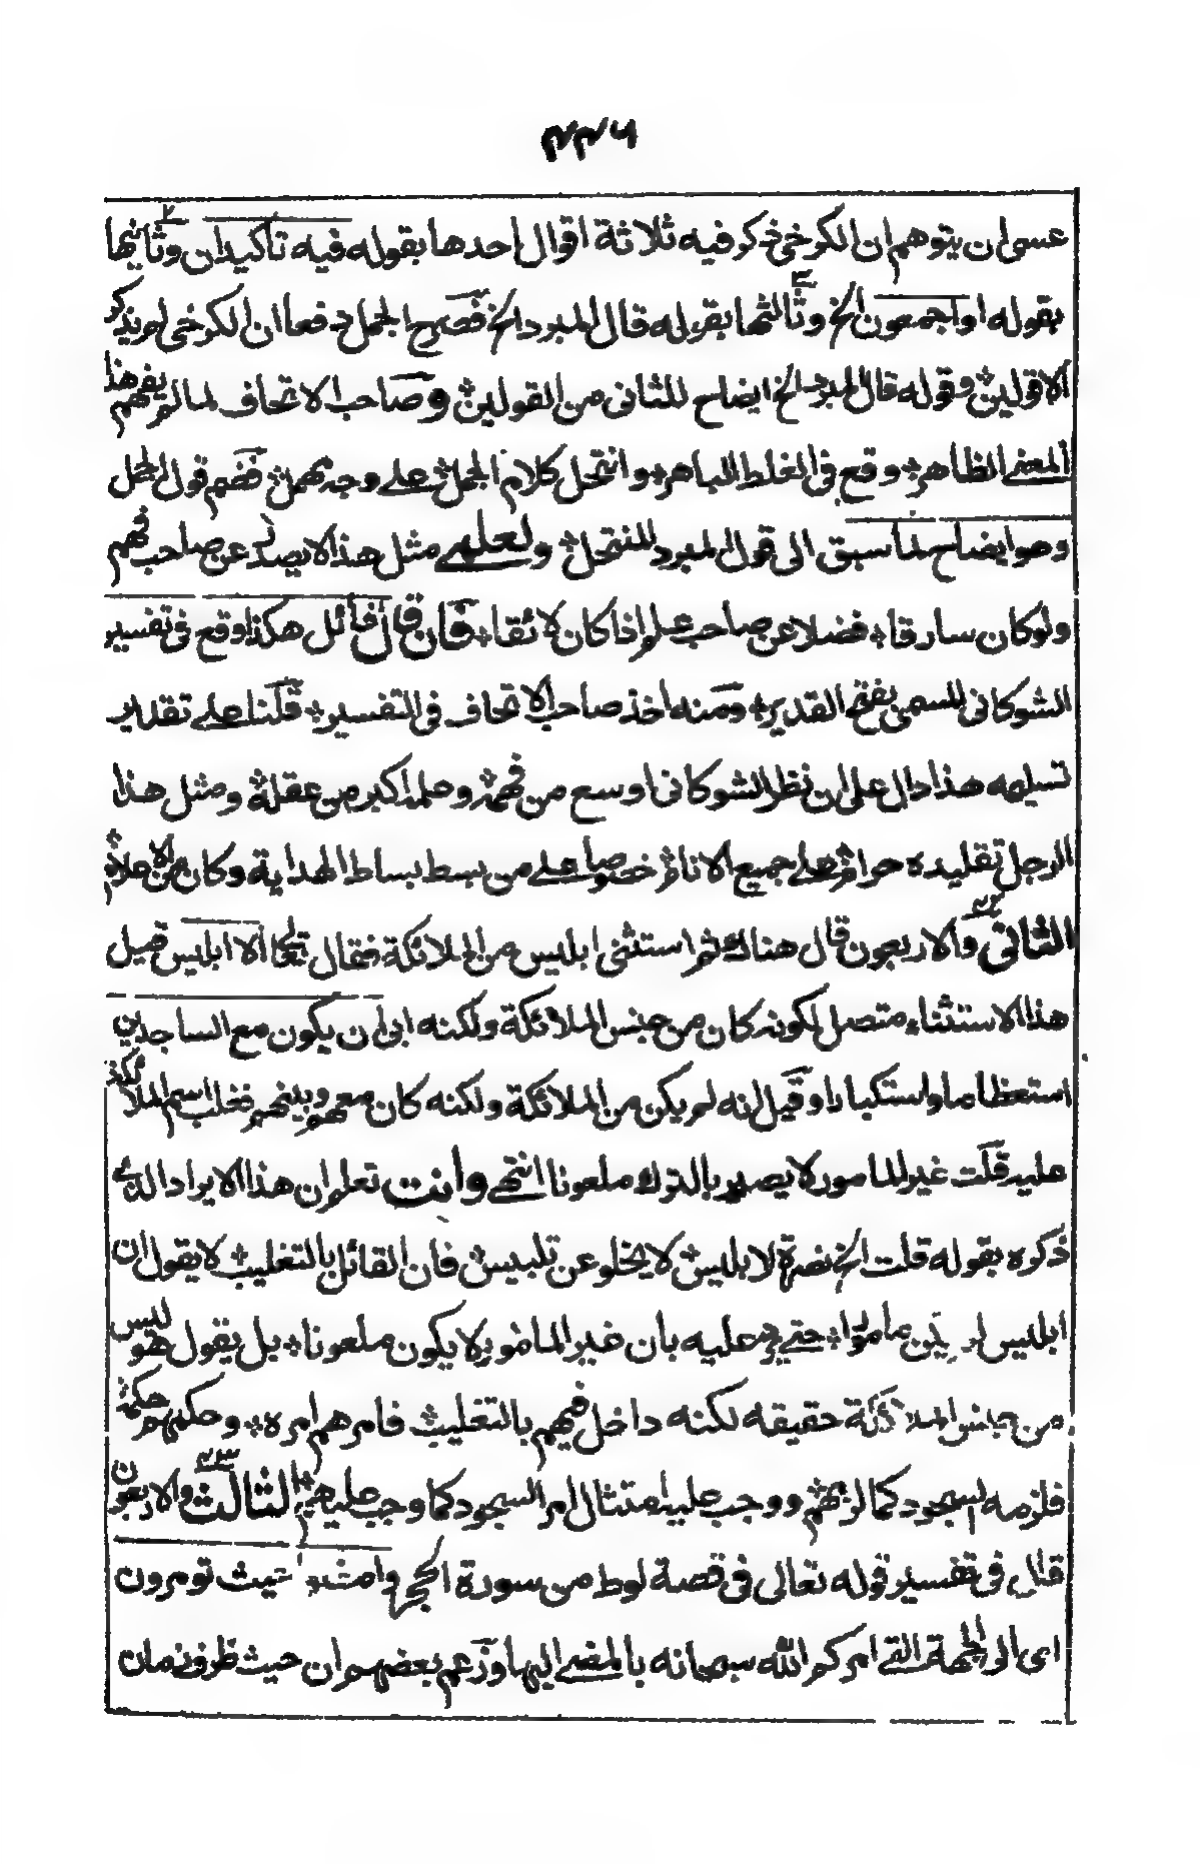 ٢٢٦
عسى ان يتوهم ان الكرخي ذكر فيه ثلاثة اقوال احدها بقوله فيه تاكيدان وثانيها
بقوله او اجمعون الخ وثالثها بقوله قال المبرد الخ فصرح الجمل دفعا ان الكرخي لم يذكر
الا قولين وقوله قال المبرد الخ ايضاح للثاني من القولين وصاحب الاتحاف لما لم يفهم هذا
المعنى الظاهر وقع في الغلط الباهر وانتحل كلام الجمل على وجه مهمل فضم قول الجمل
وهو ايضاح لما سبق الى قول المبرد المنتحل ولعلهى مثل هذا لا يصدر عن صاحب فهم
ولو كان سارقا فضلا عن صاحب علم اذا كان لائقا فان قال قائل هكذا وقع في تفسير
الشوكاني المسمى بفتح القدير ومنه اخذ صاحب الاتحاف في التفسير قلنا على تقدير
تسليمه هذا دال على ان نظر الشوكاني اوسع من فهمه وعلمه اكبر من عقله ومثل هذا
الرجل تقليده حرام على جميع الانام خصوصا على من بسط بساط الهداية وكان من الاعلام
الثاني والاربعون ٤٢ قال هناك ثم استثنى ابليس من الملائكة فقال تعالى الا ابليس قيل
هذا الاستثناء متصل لكونه كان من جنس الملائكة ولكنه ابى ان يكون مع الساجدين
استعظاما واستكبارا وقيل انه لم يكن من الملائكة ولكنه كان معهم وبينهم فغلب اسم الملائكة
عليه قلت غير المامور لا يصير بالترك ملعونا انتهى وانت تعلم ان هذا الايراد الذي
ذكره بقوله قلت الخ نصرة لابليس لا يخلو عن تلبيس فان القائل بالتغليب لا يقول ان
ابليس لم يكن مامورا حتى يرد عليه بان غير المامور لا يكون ملعونا بل يقول هو ليس
من جنس الملائكة حقيقه لكنه داخل فيهم بالتغليب فامرهم امره وحكمهم حكمه
فلزمه السجود كما لزمهم ووجب عليه امتثال امر السجود كما وجب عليهم الثالث والاربعون ٤٣
قال في تفسير قوله تعالى في قصة لوط من سورة الحجر وامضوا حيث تومرون
اى الى الجهة التي امركم الله سبحانه بالمضى اليها وزعم بعضهم ان حيث ظرف زمان